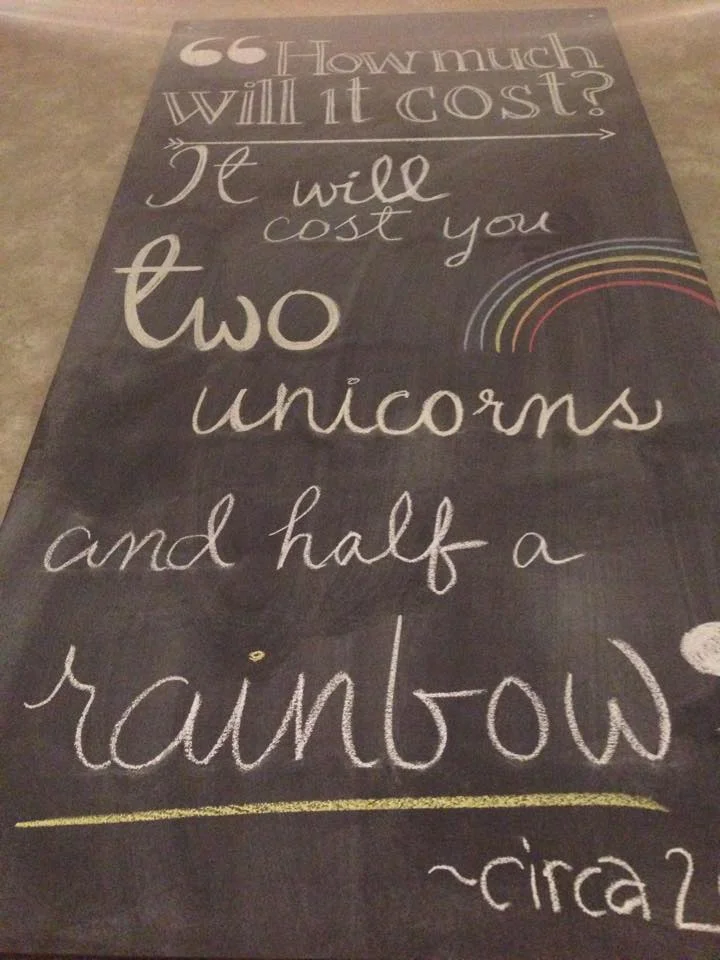 “How much
will it cost?
It will
cost you
two
unicorns
and half a
rainbow
~circa 2